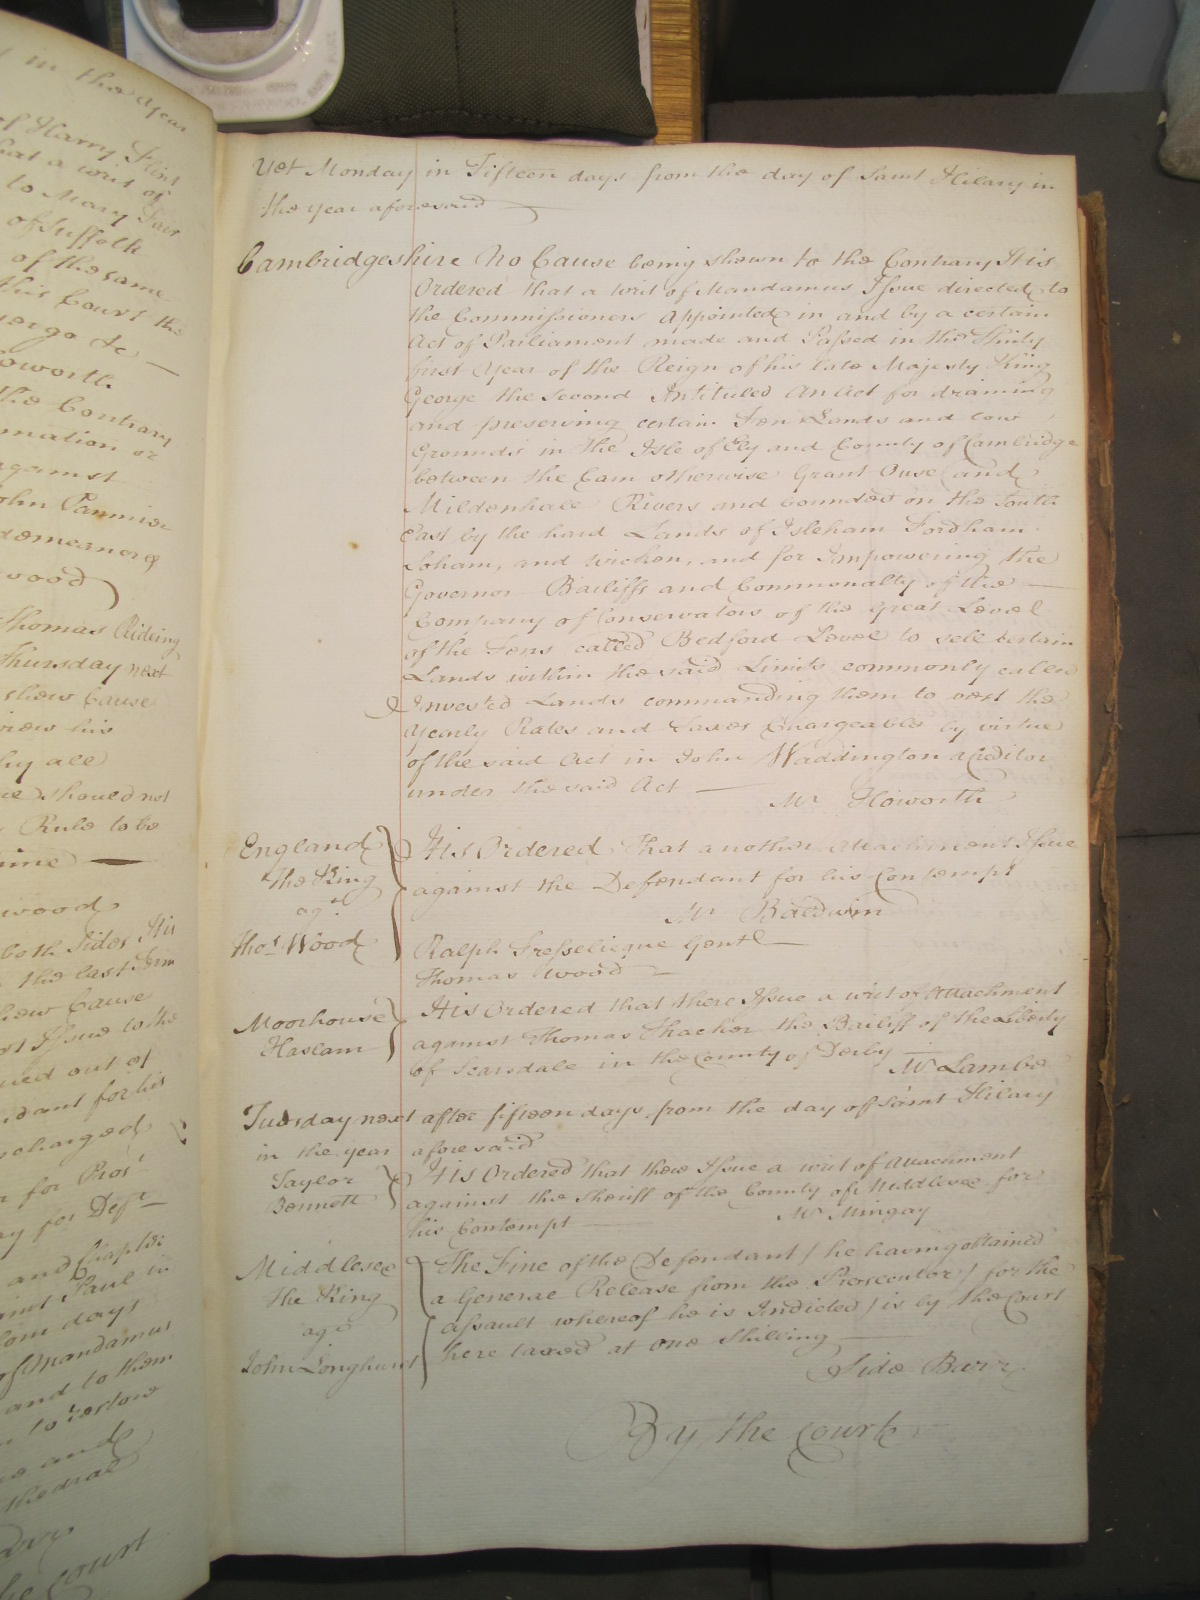 in the year
of Harry Flint
that a writ of
to Mary
of Suffolk
of the same
this Court the
&c
Howorth
the Contrary
Information or
against
John Pannier
Misdemeanors
wood
Thomas Rideing
Thursday next
shew Cause
why all
should not
Rule to be
wood
both Sides It is
the last Term
shew Cause
Issue to the
issued out of
Defendant for his
discharged
for Pros:
for Deft
and Chapter
Saint Paul in
from days
of Mandamus
and to them
to restore
and
Cathedral
the Court
Yet Monday in Fifteen days from the day of Saint Hilary in
the year aforesaid
Cambridgeshire No Cause being shewn to the Contrary It is
Ordered that a Writ of Mandamus Issue directed to
the Commissioners appointed in and by a certain
Act of Parliament made and Passed in the Thirty
first Year of the Reign of his late Majesty King
George the Second Intituled An Act for draining
and preserving certain Fen Lands and Low
Grounds in the Isle of Ely and County of Cambridge
between the Cam otherwise Grant Ouse and
Mildenhall Rivers and bounded on the South
East by the hard Lands of Isleham Fordham
Soham, and Wicken, and for Impowering the
Governor Bailiffs and Commonalty of the
Company of Conservators of the Great Level
of the Fens called Bedford Level to sell certain
Lands within the said Limits commonly called
Invested Lands commanding them to vest the
Yearly Rates and Taxes Chargeable by virtue
of the said Act in John Waddington a Creditor
under the said Act
Mr Howorth
England It is Ordered That another Attachment Issue
The King against the Defendant for his Contempt
agt Mr Baldwin
Thos Wood Ralph Gent
Thomas Wood
Moorhouse It is Ordered that there Issue a writ of Attachment
Haslam against Thomas Thacker the Bailiff of the Liberty
of Scarsdale in the County of Derby Mr Lambe
Tuesday next after fifteen days from the day of Saint Hilary
in the year aforesaid
Taylor It is Ordered that there Issue a writ of Attachment
Bennett against the Sheriff of the County of Middlesex for
his Contempt Mr Mingay
Middlesex The Fine of the Defendant / he having obtained
The King a General Release from the Prosecutor / for the
agt assault whereof he is Indicted / is by the Court
John Longhurst here taxed at one Shilling
Side Bar
By the Court